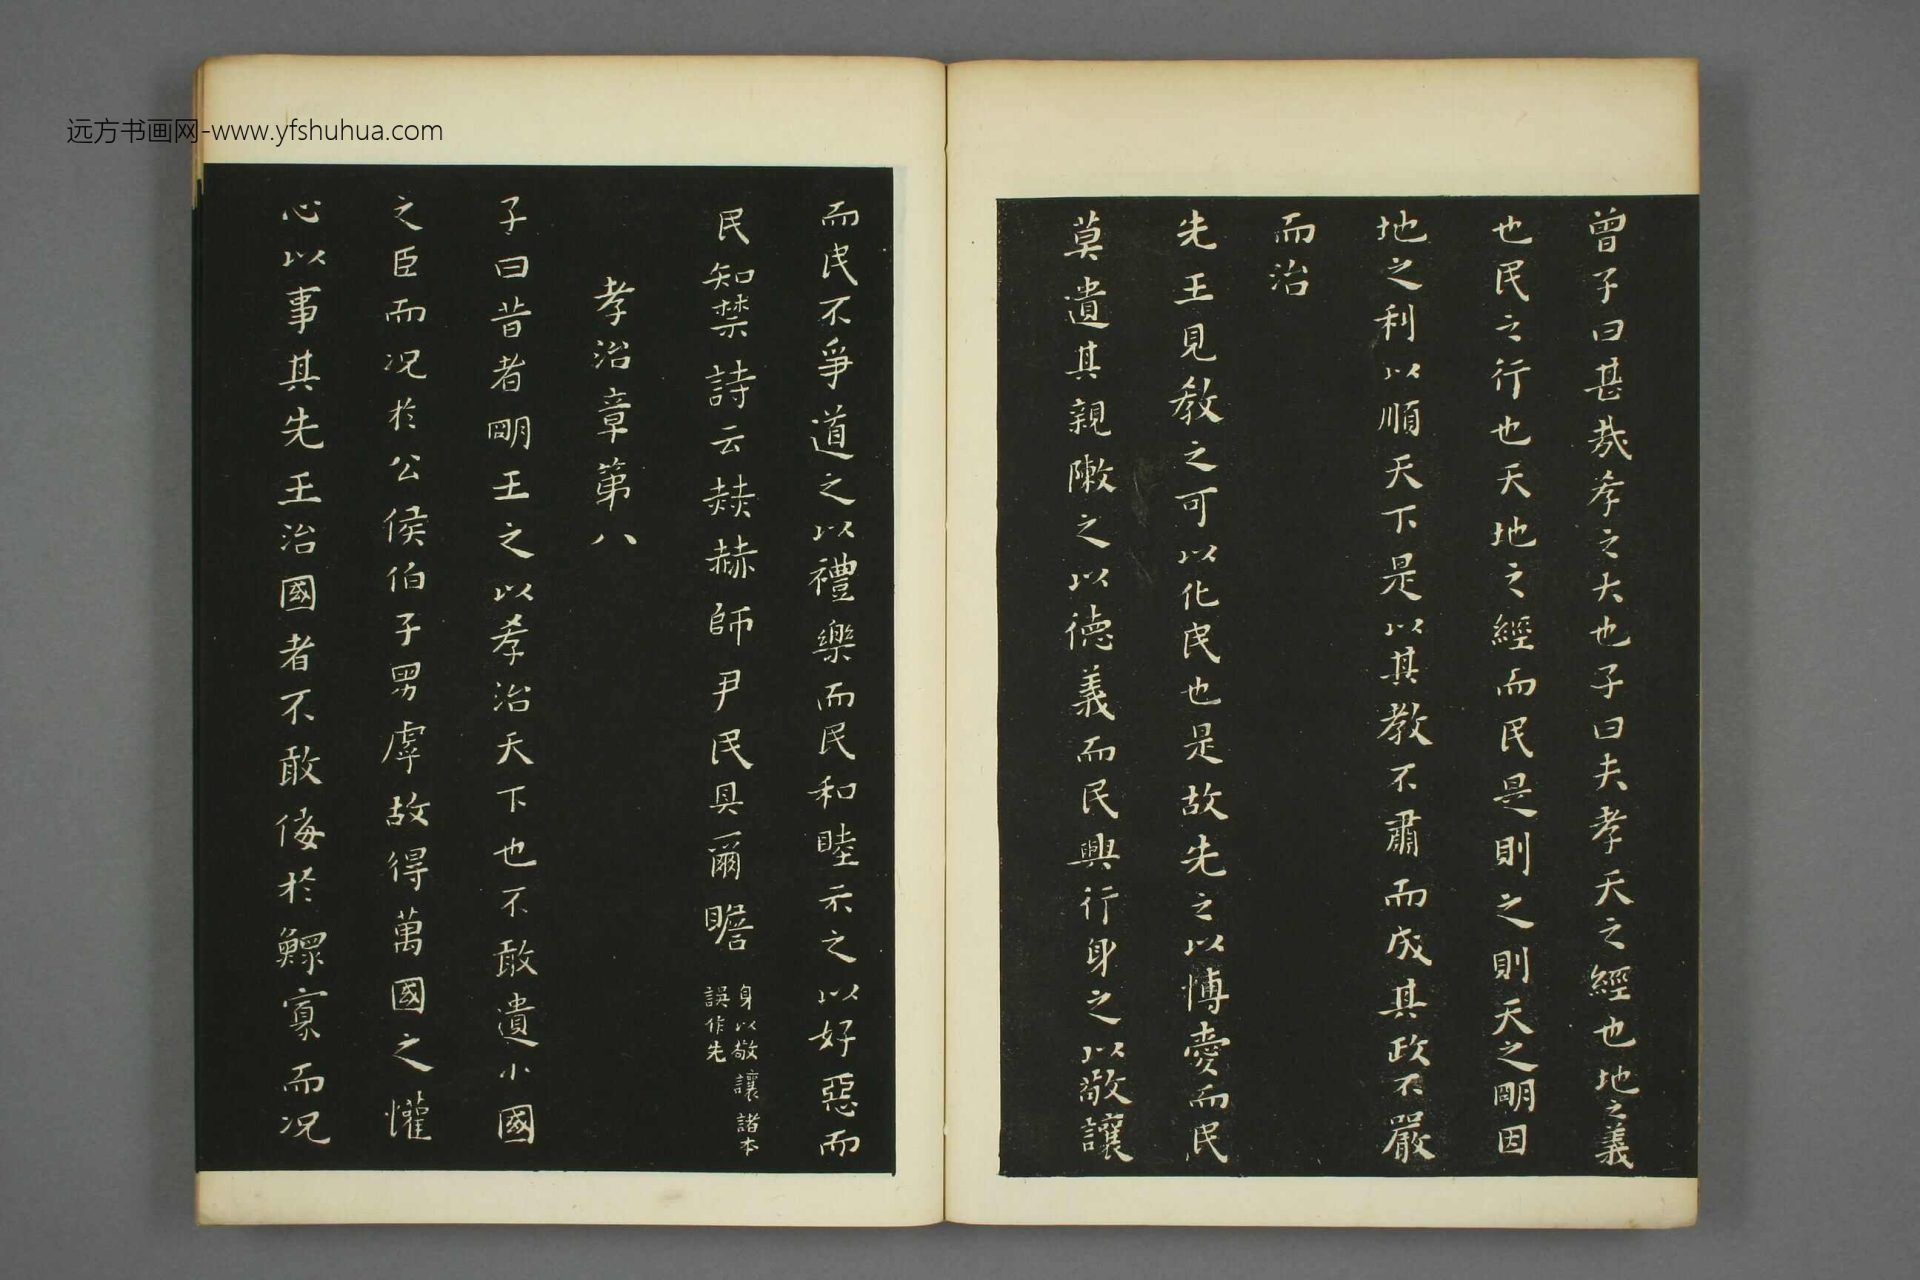 远方书画网-www.yfshuhua.com
曾子曰甚哉孝之大也子曰夫孝天之經也地之義
也民之行也天地之經而民是則之則天之明因
地之利以順天下是以其教不肅而成其政不嚴
而治
先王見教之可以化民也是故先之以博愛而民
莫遺其親陳之以德義而民興行身之以敬讓
而民不爭道之以禮樂而民和睦示之以好惡而
民知禁詩云赫赫師尹民具爾瞻
身以敬讓諸本
誤作先
孝治章第八
子曰昔者明王之以孝治天下也不敢遺小國
之臣而況於公侯伯子男虖故得萬國之懽
心以事其先王治國者不敢侮於鰥寡而況